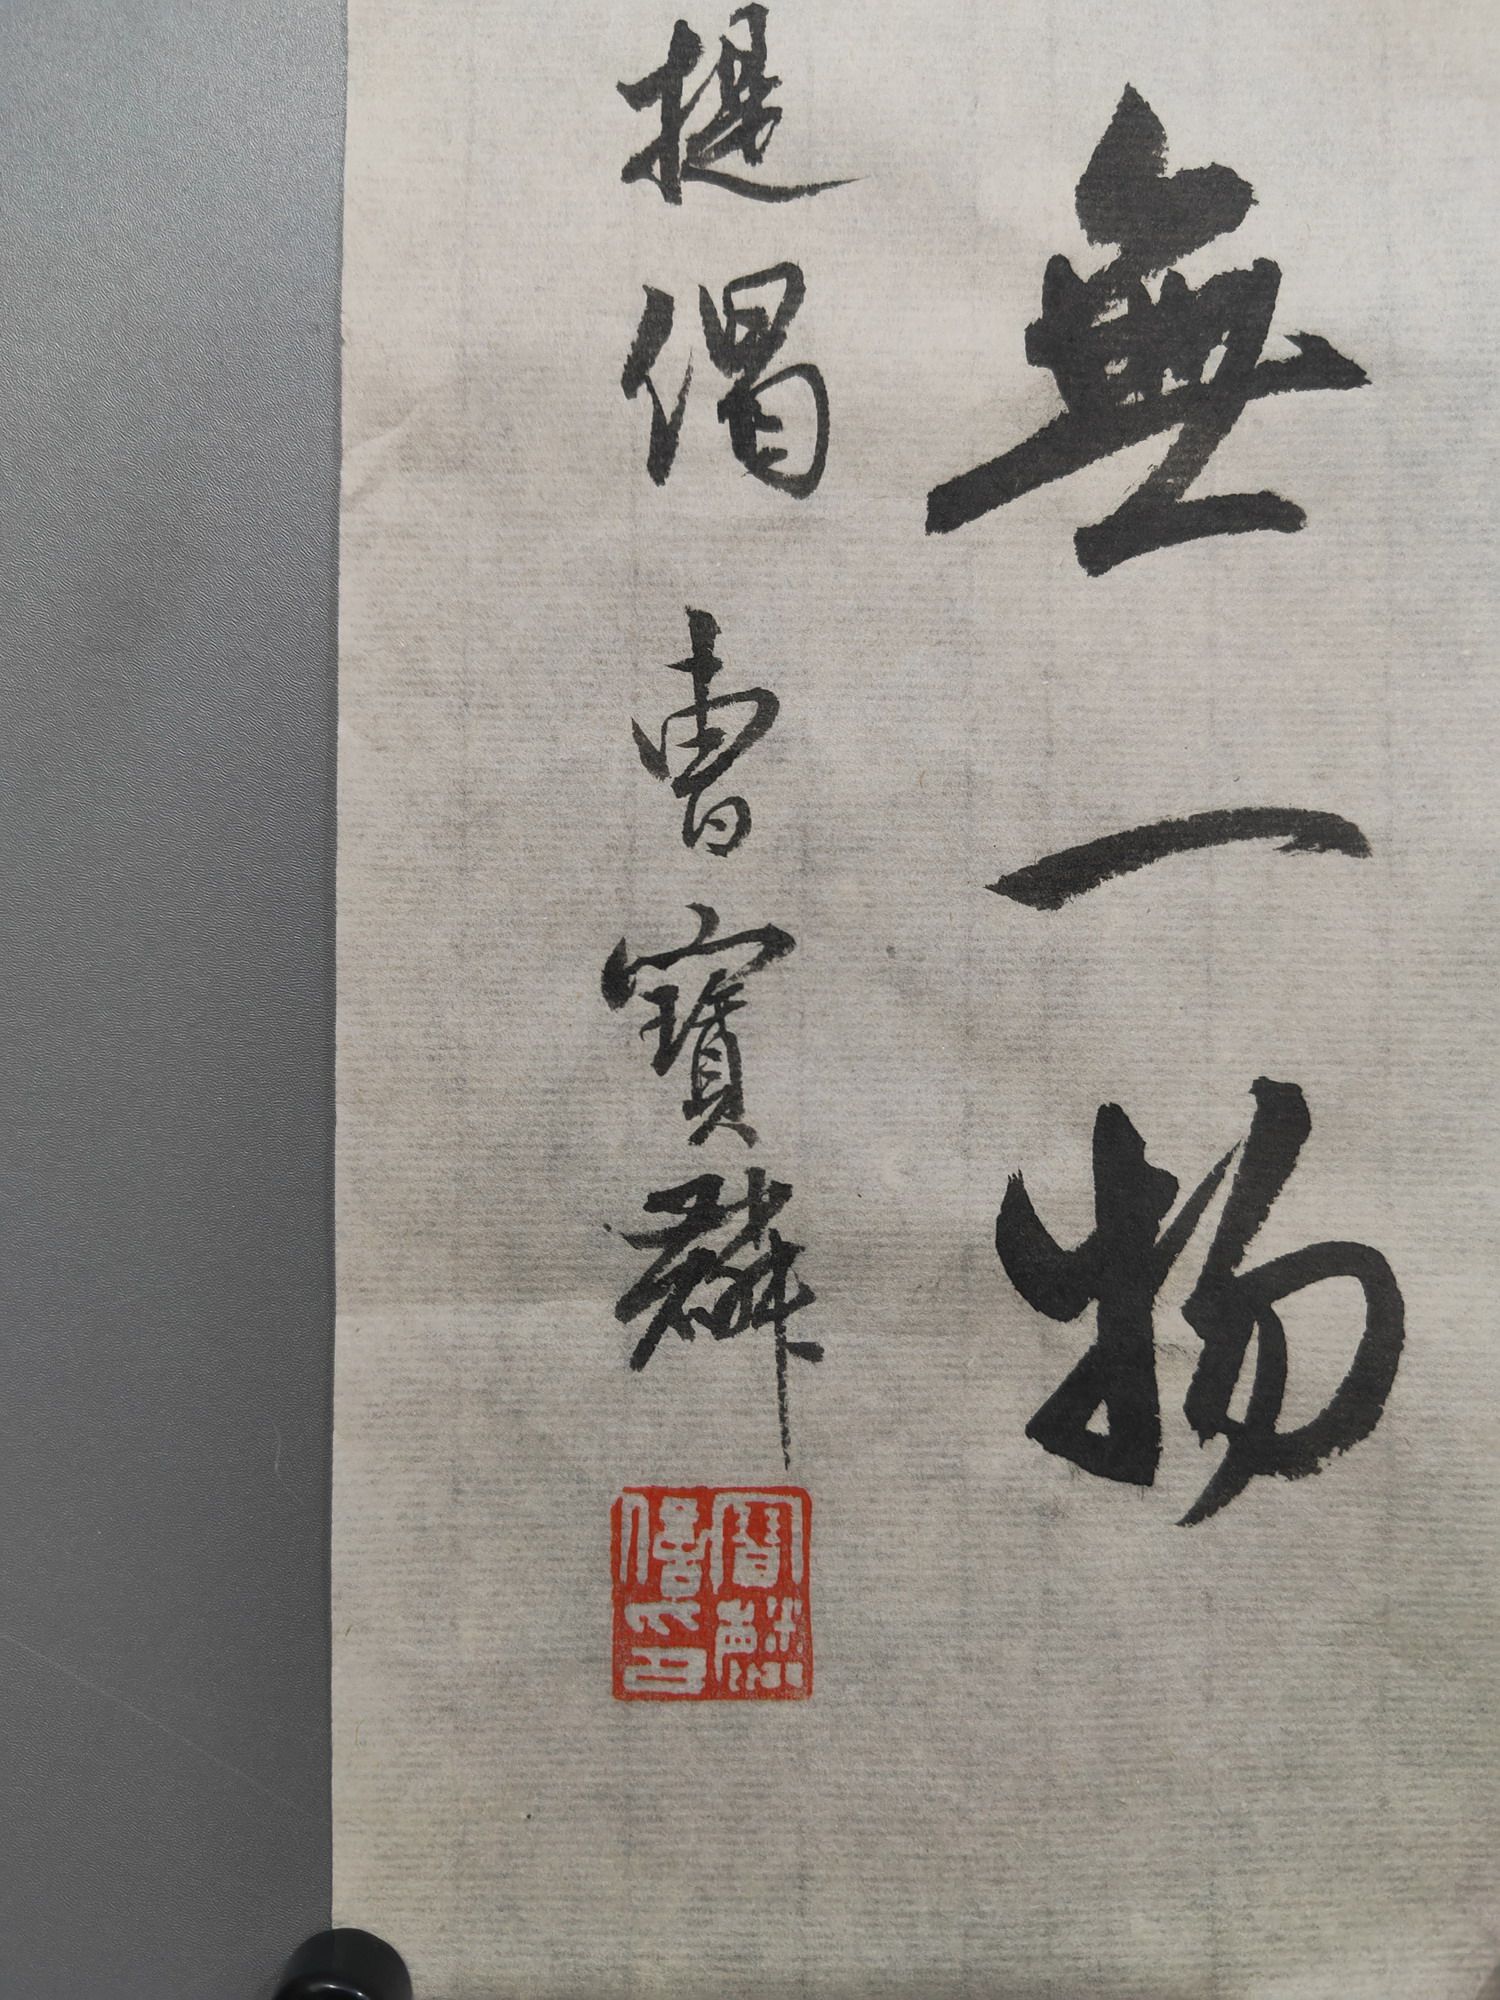 無一物
提偈曹寶麟
寶麟信印